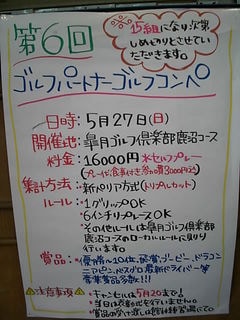 ※15組になり次第
しめきりとさせてい
ただきます。
第6回
ゴルフパートナーゴルフコンペ
日時：5月27日(日)
開催地：皐月ゴルフ倶楽部鹿沼コース
料金：16000円 ※セルフプレー
(プレー代、食事付き 参加費3000円込)
集計方法：新ペリア方式(トリプルカット)
ルール：1グリップOK
6インチプレースOK
その他ルールは皐月ゴルフ倶楽部
鹿沼コースのローカルルールに則り
行います。
賞品：優勝〜10位、飛賞、ブービー、ドラコン
ニアピン、ベスグロ 最新ドライバー等
豪華賞品多数!!!
注意事項 キャンセルは5月20まで!
当日は表彰式を行いません。